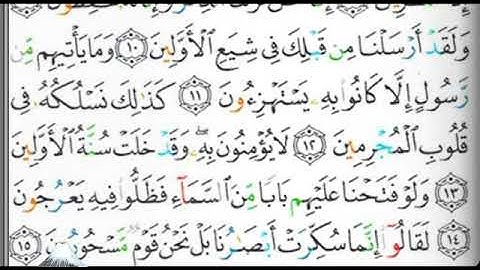 وَلَقَدۡ أَرۡسَلۡنَا مِن قَبۡلِكَ فِي شِيَعِ ٱلۡأَوَّلِينَ ١٠ وَمَا يَأۡتِيهِم مِّن
رَّسُولٍ إِلَّا كَانُواْ بِهِۦ يَسۡتَهۡزِءُونَ ١١ كَذَٰلِكَ نَسۡلُكُهُۥ فِي
قُلُوبِ ٱلۡمُجۡرِمِينَ ١٢ لَا يُؤۡمِنُونَ بِهِۦ وَقَدۡ خَلَتۡ سُنَّةُ ٱلۡأَوَّلِينَ
١٣ وَلَوۡ فَتَحۡنَا عَلَيۡهِم بَابٗا مِّنَ ٱلسَّمَآءِ فَظَلُّواْ فِيهِ يَعۡرُجُونَ
١٤ لَقَالُوٓاْ إِنَّمَا سُكِّرَتۡ أَبۡصَٰرُنَا بَلۡ نَحۡنُ قَوۡمٞ مَّسۡحُورُونَ ١٥